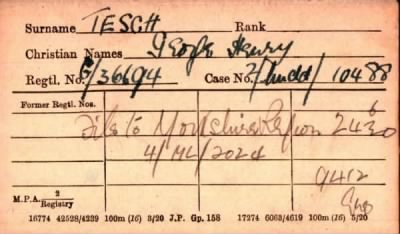 Surname TESCH Rank
Christian Names George Henry
Regtl. No. 5/36694 Case No. 7/ / 10488
Former Regtl. Nos.
File to Yorkshire Region 24
4/ML/2024
9412
M.P.A. 2
Registry
16774 42528/4239 100m (16) 3/20 J.P. Gp. 158 17274 6063/4619 100m (16) 5/20